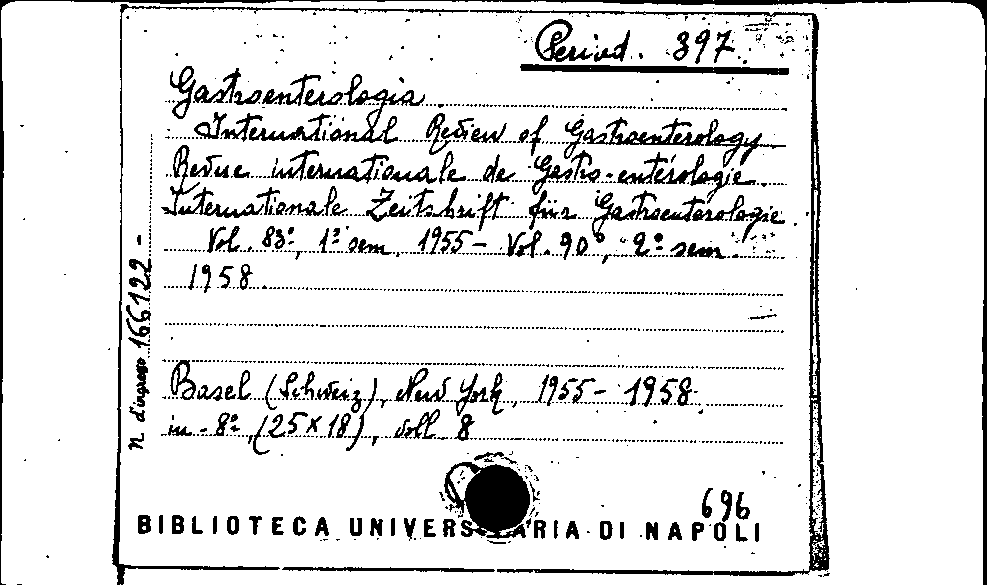 Period. 397.
Gastroenterologia.
International Review of Gastroenterology
Revue internationale de Gastro-entérologie.
Internationale Zeitshrift für Gastroenterologie.
Vol. 83º, 1º sem. 1955 - Vol. 90º, 2º sem.
1958.
n. d'ingresso 166122 -
Basel (Schweiz), New York, 1955 - 1958.
in - 8º, (25 x 18), voll. 8
696
BIBLIOTECA UNIVERS ARIA DI NAPOLI